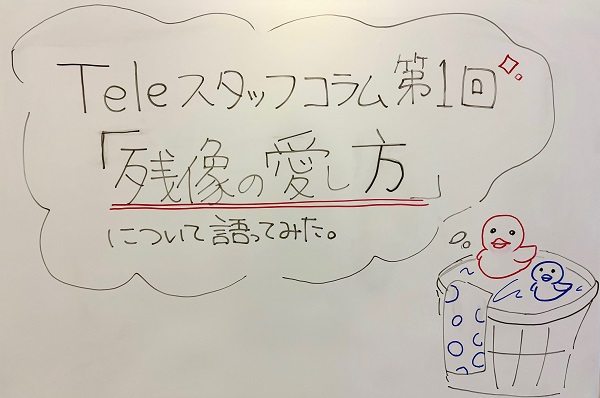 Teleスタッフコラム第1回
「残像の愛し方」
について語ってみた。